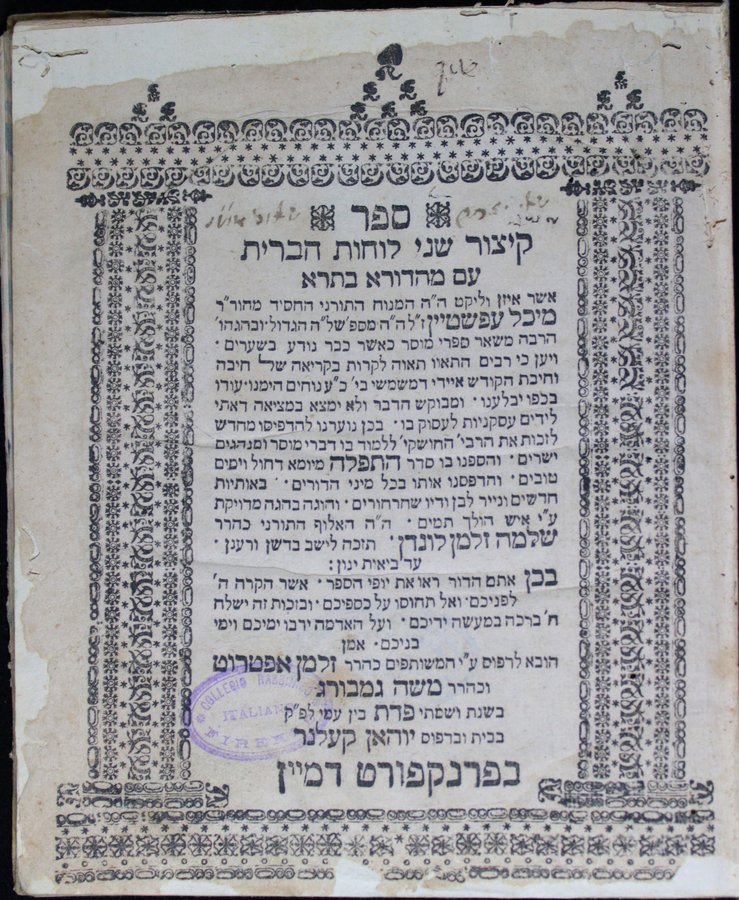 ספר
קיצור שני לוחות הברית
עם מהדורא בתרא
אשר איזן וליקט ה"ה המנוח התורני החסיד מהור"ר
מיכל עפשטיין ז"ל ה"ה מספ' של"ה הגדול · ובהגהו'
הרבה משאר ספרי מוסר כאשר כבר נודע בשערים ·
ויען כי רבים התאוו תאוה לקרות בקריאה של חיבה
וחיבת הקודש איידי דמשמשי בי' כ"ע נוחים הימנו · עודו
בכפו יבלענו · ומבוקש הדבר ולא ימצא במציאה דאתי
לידים עסקניות לעסוק בו · בכן נוערנו להדפיסו מחדש
לזכות את הרבי' החושקי' ללמוד בו דברי מוסר ומנהגים
ישרים · והספנו בו סדר התפלה מיומא דחול וימים
טובים · והדפסנו אותו בכל מיני הדורים · באותיות
חדשים ונייר לבן ודיו שחרחורים · והוגה בהגה מדויקת
ע"י איש הולך תמים · ה"ה האלוף התורני כהרר
שלמה זלמן לונדן · תזכה לישב בדשן ורענן ·
עד ביאית ינון :
בכן אתם הדור ראו את יופי הספר · אשר הקרה ה'
לפניכם · ואל תחוסו על כספיכם · ובזכות זה ישלח
ח' ברכה במעשה ידיכם · ועל האדמה ירבו ימיכם וימי
בניכם · אמן
הובא לדפוס ע"י המשותפים כהרר זלמן אפטרוט
וכהרר משה גמבורג
בשנת ושמתי פדת בין עמי לפ"ק
בבית ובדפוס יוהאן קעלנר
בפרנקפורט דמיין
COLLEGIO RABBINICO
ITALIANO
FIRENZE